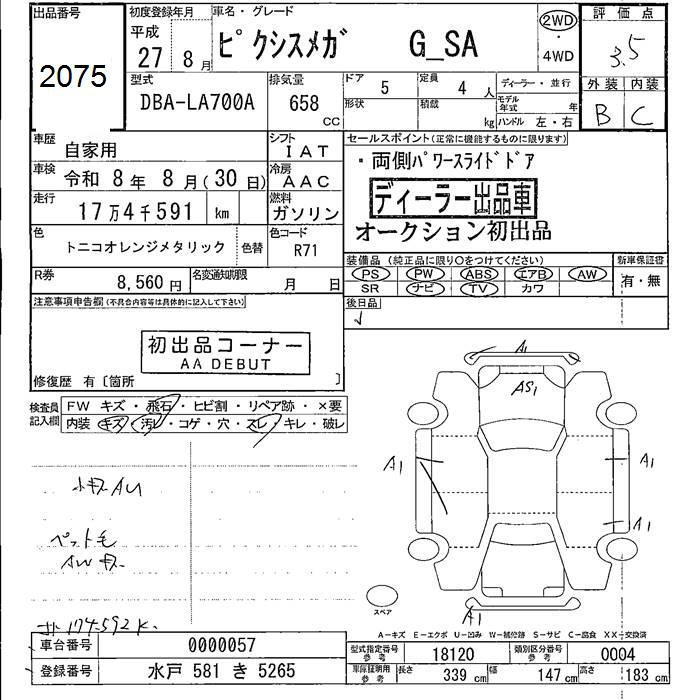 出品番号
2075
初度登録年月
平成
27年 8月
車名・グレード
ピクシスメガ G_SA
2WD
・
4WD
評価点
3.5
外装 内装
B C
型式
DBA-LA700A
排気量
658
cc
ドア 5
形状
定員 4人
積載 kg
ディーラー・並行
モデル年式 年
ハンドル 左・右
車歴
自家用
シフト
IAT
車検
令和 8年 8月(30日)
冷房
AAC
走行
17万4千591 km
燃料
ガソリン
色
トニコオレンジメタリック
色替
色コード
R71
R券
8,560円
名変通知期限
月 日
セールスポイント(正常に機能するものに限ります)
・両側パワースライドドア
ディーラー出品車
オークション初出品
装備品(純正品に限り○をつけてください)
PS PW ABS エアB AW
SR ナビ TV カワ
新車保証書
有・無
後日品
注意事項申告欄(不具合内容等は具体的に記入して下さい)
初出品コーナー
AA DEBUT
修復歴 有〔箇所 〕
検査員
記入欄
FW キズ・飛石・ヒビ割・リペア跡・×要
内装 キズ・汚レ・コゲ・穴・スレ・キレ・破レ
小キズAU
ペット毛
AWキズ
174592K
A1
AS1
A1
A1
A1
A1
スペア
A-キズ E-エクボ U-凹み W-補修跡 S-サビ C-腐食 XX-交換済
車台番号 0000057
登録番号 水戸 581 き 5265
型式指定番号
参考
18120
類別区分番号
参考
0004
車庫証明用
参考
長さ 339 cm 幅 147 cm 高さ 183 cm